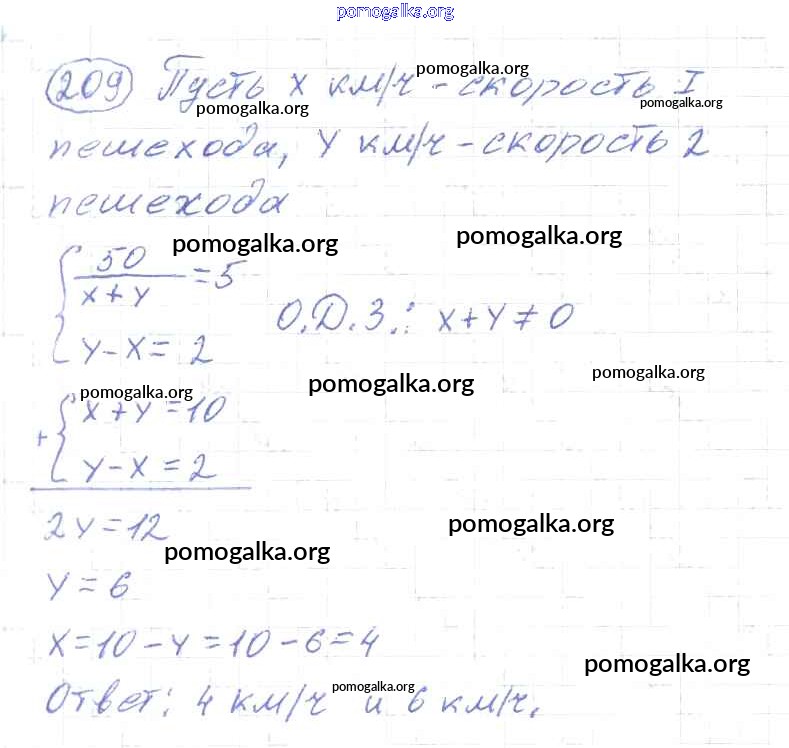 pomogalka.org
209 Пусть x км/ч - скорость I
pomogalka.org
pomogalka.org
pomogalka.org
пешехода, y км/ч - скорость 2
пешехода
pomogalka.org
pomogalka.org
{ 50 / (x + y) = 5
О.Д.З.: x + y ≠ 0
y - x = 2
pomogalka.org
pomogalka.org
pomogalka.org
+ { x + y = 10
y - x = 2
2y = 12
pomogalka.org
pomogalka.org
y = 6
x = 10 - y = 10 - 6 = 4
pomogalka.org
Ответ: 4 км/ч и 6 км/ч.
pomogalka.org